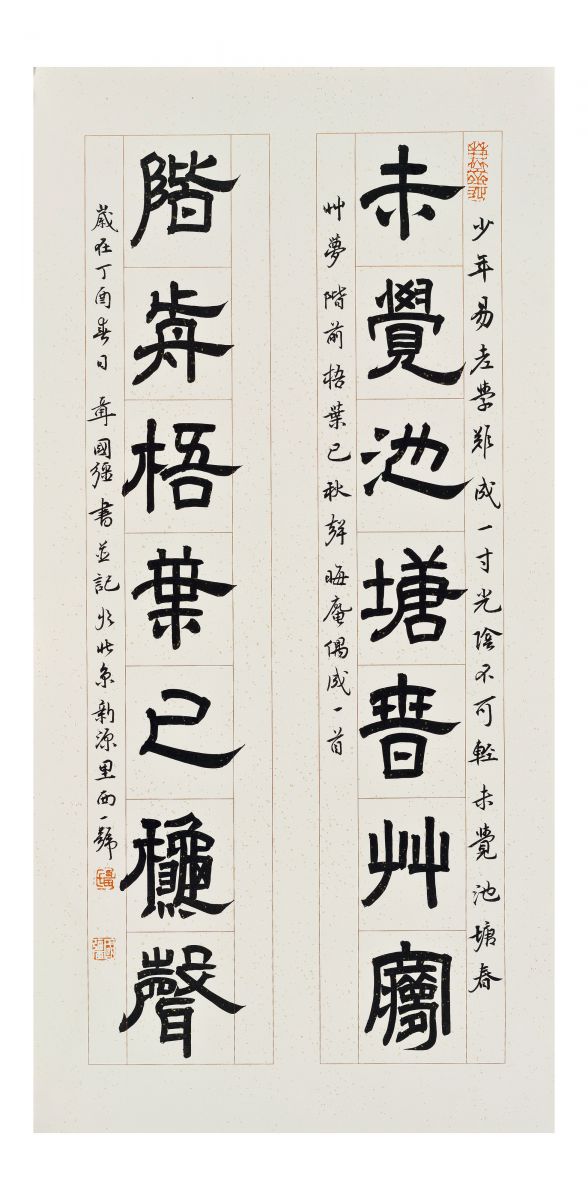 少年易老學難成一寸光陰不可輕未覺池塘春
未覺池塘春艸夢
艸夢階前梧葉已秋聲晦庵偶成一首
階歬梧葉已龝聲
歲在丁酉春日國強書並記於北京新源里西一號